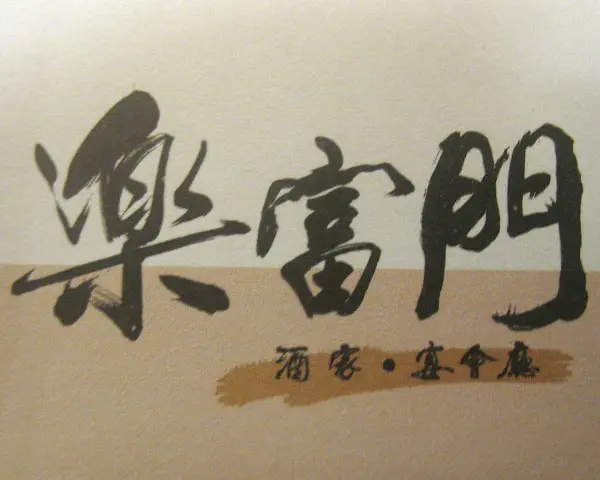 樂富門
酒家·宴會廳